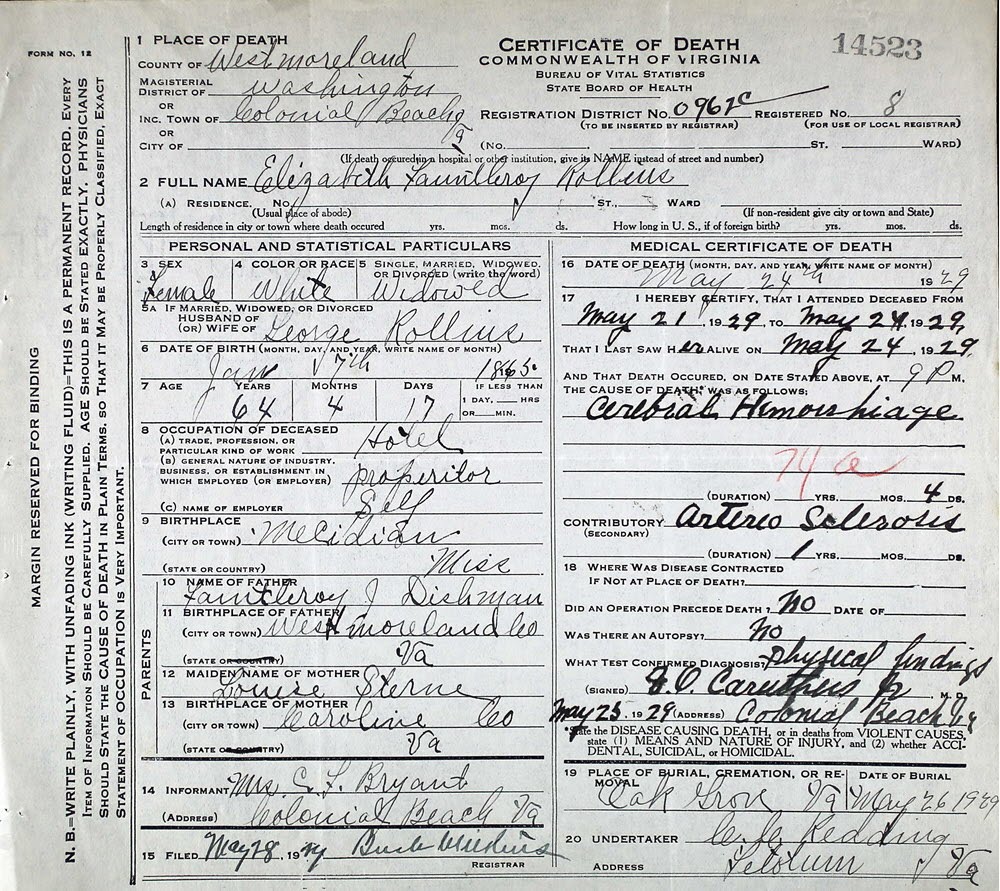 FORM NO. 12
MARGIN RESERVED FOR BINDING
N. B.—WRITE PLAINLY, WITH UNFADING INK WRITING FLUID—THIS IS A PERMANENT RECORD. EVERY
ITEM OF INFORMATION SHOULD BE CAREFULLY SUPPLIED. AGE SHOULD BE STATED EXACTLY. PHYSICIANS
SHOULD STATE THE CAUSE OF DEATH IN PLAIN TERMS, SO THAT IT MAY BE PROPERLY CLASSIFIED, EXACT
STATEMENT OF OCCUPATION IS VERY IMPORTANT.
1 PLACE OF DEATH
COUNTY OF Westmoreland
MAGISTERIAL
DISTRICT OF Washington
OR
INC. TOWN OF Colonial Beach Va
OR
CITY OF
CERTIFICATE OF DEATH
COMMONWEALTH OF VIRGINIA
BUREAU OF VITAL STATISTICS
STATE BOARD OF HEALTH
14523
REGISTRATION DISTRICT NO. 0961c REGISTERED NO. 8
(TO BE INSERTED BY REGISTRAR) (FOR USE OF LOCAL REGISTRAR)
(NO. ST. WARD)
(If death occured in a hospital or other institution, give its NAME instead of street and number)
2 FULL NAME Elizabeth Fauntleroy Rollins
(A) RESIDENCE. No. ST., WARD
(Usual place of abode) (If non-resident give city or town and State)
Length of residence in city or town where death occured yrs. mos. ds. How long in U. S., if of foreign birth? yrs. mos. ds.
PERSONAL AND STATISTICAL PARTICULARS
3 SEX 4 COLOR OR RACE 5 SINGLE, MARRIED, WIDOWED,
OR DIVORCED (write the word)
Female White Widowed
5A IF MARRIED, WIDOWED, OR DIVORCED
HUSBAND OF
(OR) WIFE OF George Rollins
6 DATE OF BIRTH (MONTH, DAY, AND YEAR, WRITE NAME OF MONTH)
Jan 7th 1865
7 AGE YEARS MONTHS DAYS IF LESS THAN
1 DAY,—HRS
OR—MIN.
64 4 17
8 OCCUPATION OF DECEASED
(A) TRADE, PROFESSION, OR
PARTICULAR KIND OF WORK Hotel
(B) GENERAL NATURE OF INDUSTRY,
BUSINESS, OR ESTABLISHMENT IN
WHICH EMPLOYED (OR EMPLOYER) properitor
(C) NAME OF EMPLOYER Self
9 BIRTHPLACE
(CITY OR TOWN) Meridian
(STATE OR COUNTRY) Miss
PARENTS
10 NAME OF FATHER
Fauntleroy J Dishman
11 BIRTHPLACE OF FATHER
(CITY OR TOWN) Westmoreland Co
(STATE OR COUNTRY) Va
12 MAIDEN NAME OF MOTHER
Louise Sterne
13 BIRTHPLACE OF MOTHER
(CITY OR TOWN) Caroline Co
(STATE OR COUNTRY) Va
14 INFORMANT Mrs. C. F. Bryant
(ADDRESS) Colonial Beach Va
15 FILED May 28, 19 29
REGISTRAR
MEDICAL CERTIFICATE OF DEATH
16 DATE OF DEATH (MONTH, DAY, AND YEAR, WRITE NAME OF MONTH)
May 24th 1929
17 I HEREBY CERTIFY, THAT I ATTENDED DECEASED FROM
May 21, 1929, TO May 24, 1929,
THAT I LAST SAW HER ALIVE ON May 24, 1929,
AND THAT DEATH OCCURED, ON DATE STATED ABOVE, AT 9 P M.
THE CAUSE OF DEATH, WAS AS FOLLOWS:
Cerebral Hemorrhiage
74 a
(DURATION) YRS. MOS. 4 DS.
CONTRIBUTORY Arterio Sclerosis
(SECONDARY)
(DURATION) 1 YRS. MOS. DS.
18 WHERE WAS DISEASE CONTRACTED
IF NOT AT PLACE OF DEATH?
DID AN OPERATION PRECEDE DEATH? No DATE OF
WAS THERE AN AUTOPSY? No
WHAT TEST CONFIRMED DIAGNOSIS? physical findings
(SIGNED) Caruthers Jr M. D.
May 25, 1929 (ADDRESS) Colonial Beach Va
*State the DISEASE CAUSING DEATH, or in deaths from VIOLENT CAUSES,
state (1) MEANS AND NATURE OF INJURY, and (2) whether ACCI-
DENTAL, SUICIDAL, or HOMICIDAL.
19 PLACE OF BURIAL, CREMATION, OR RE-
MOVAL DATE OF BURIAL
Oak Grove Va May 26 1929
20 UNDERTAKER Redding
ADDRESS Va